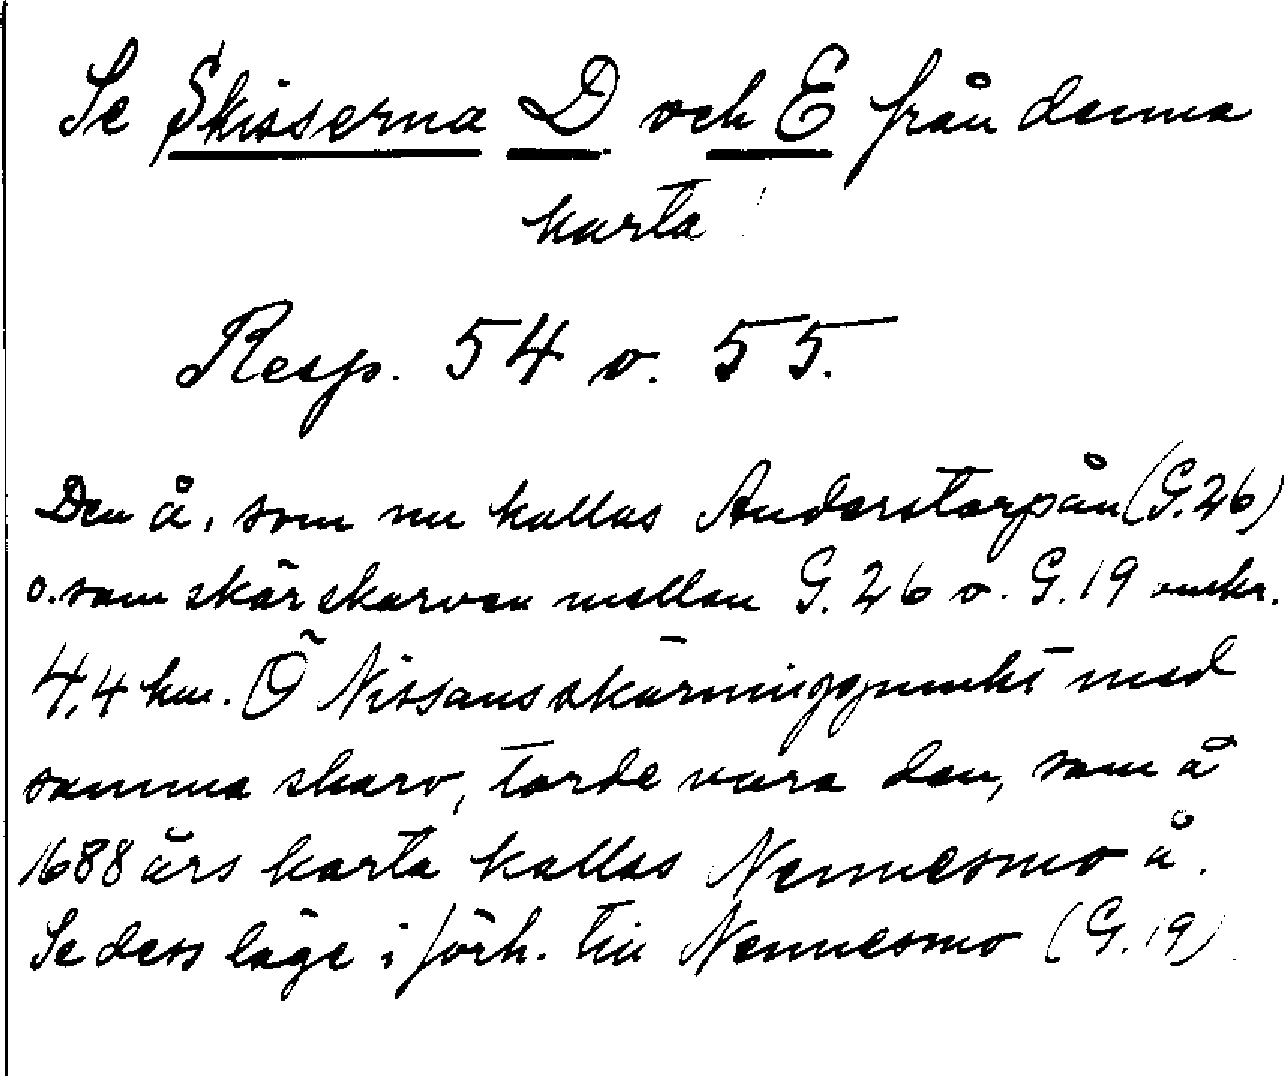 Se Skisserna D och E från denna
karta
Resp. 54 o. 55.
Den å, som nu kallas Anderstorpån (G.26)
o. som skär skarven mellan G. 26 o. G. 19 omkr.
4,4 km. Ö Nissans skärningspunkt med
samma skarv, torde vara den, som å
1688 års karta kallas Nennesmo å.
Se dess läge i förh. till Nennesmo (G. 19)